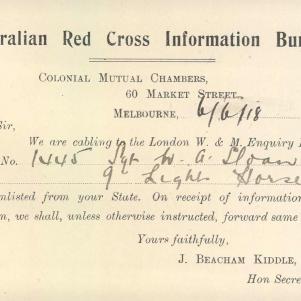 ralian Red Cross Information Bu
COLONIAL MUTUAL CHAMBERS,
60 MARKET STREET
MELBOURNE, 6/6/18
Sir,
We are cabling to the London W. & M. Enquiry
No. 1445 Sgt W. A. Sloan
9th Light Horse
enlisted from your State. On receipt of information
n, we shall, unless otherwise instructed, forward same
Yours faithfully,
J. BEACHAM KIDDLE,
Hon Secre